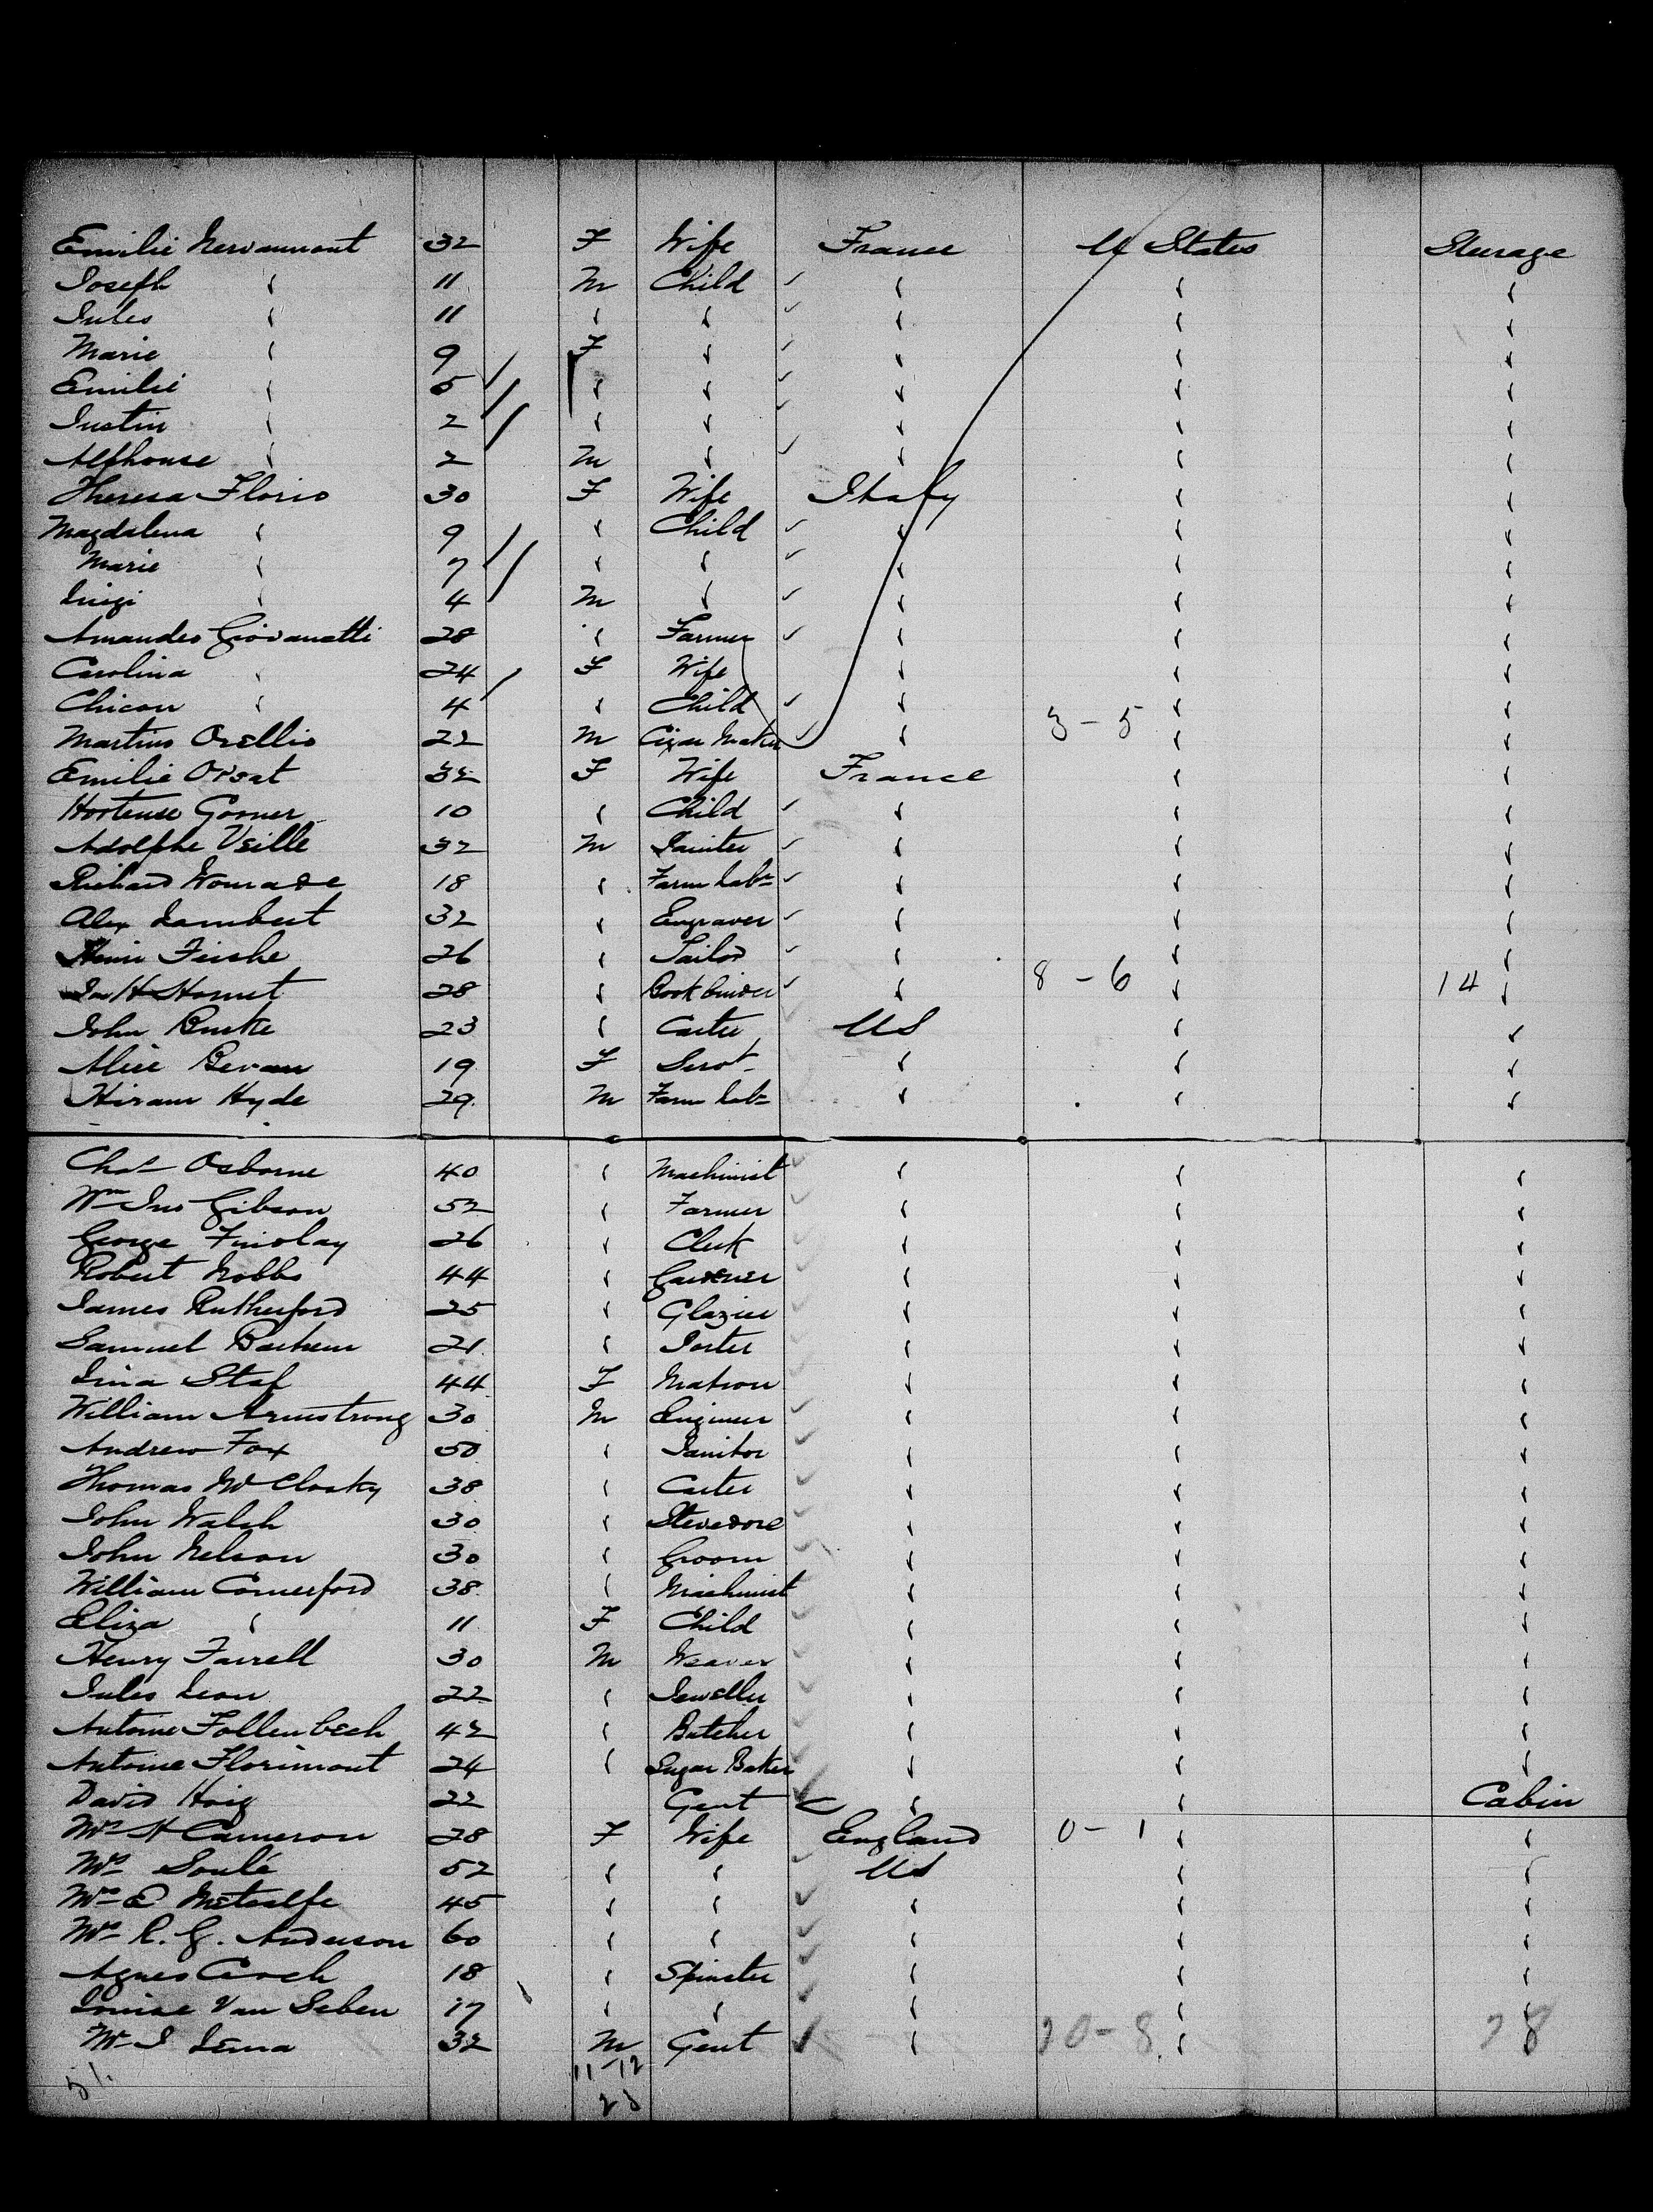 Emilie Nervaumont 32 F Wife France U States Steerage
Joseph " 11 M Child " " "
Jules " 11 " " " " "
Marie " 9 F " " " "
Emilie " 5 " " " " "
Justin " 2 " " " " "
Alphonse " 2 M " " " "
Theresa Florio 30 F Wife Italy " "
Magdalena " 9 " Child " " "
Marie " 7 " " " " "
Luigi " 4 M " " " "
Amandeo Giovanatti 28 " Farmer " " "
Carolina " 24 F Wife " " "
Chicon " 4 " Child " 3-5 " "
Martino Orellio 22 M Cigar Maker " " "
Emilie Orsat 32 F Wife France " "
Hortense Gorner 10 " Child " " "
Adolphe Veille 32 M Painter " " "
Richard Womrade 18 " Farm Labr " " "
Alex Lambert 32 " Engraver " " "
Henri Feishe 26 " Tailor " " "
H Hornet 28 " Bookbinder " 8-6 " 14 "
John Burke 23 " Carter US " "
Alice Bevan 19 F Servt " " "
Hiram Hyde 29 M Farm Labr " " "
Chas Osborne 40 " Machinist " " "
Wm Jno Gibson 52 " Farmer " " "
George Findlay 26 " Clerk " " "
Robert Nobbs 44 " Gardener " " "
James Rutherford 25 " Glazier " " "
Samuel Barkem 21 " Porter " " "
Lina Staf 44 F Matron " " "
William Armstrong 30 M Engineer " " "
Andrew Fox 50 " Janitor " " "
Thomas McClosky 38 " Carter " " "
John Walsh 30 " Stevedore " " "
John Nelson 30 " Groom " " "
William Comerford 38 " Machinist " " "
Eliza " 11 F Child " " "
Henry Farrell 30 M Weaver " " "
Jules Leon 22 " Jeweller " " "
Antoine Follenbech 42 " Butcher " " "
Antoine Florimont 24 " Sugar Baker " " "
David Haig 22 Gent " " Cabin
Mrs H Cameron 28 F Wife England 0-1 " "
Mrs Soulé 52 " " US " "
Mrs E Metcalfe 45 " " " " "
Mrs R. G. Anderson 60 " " " " "
Agnes Croch 18 " Spinster " " "
Louise Van Seben 17 " " " " "
Mr J Lema 32 M Gent " 20-8 " 28
51. 11-12